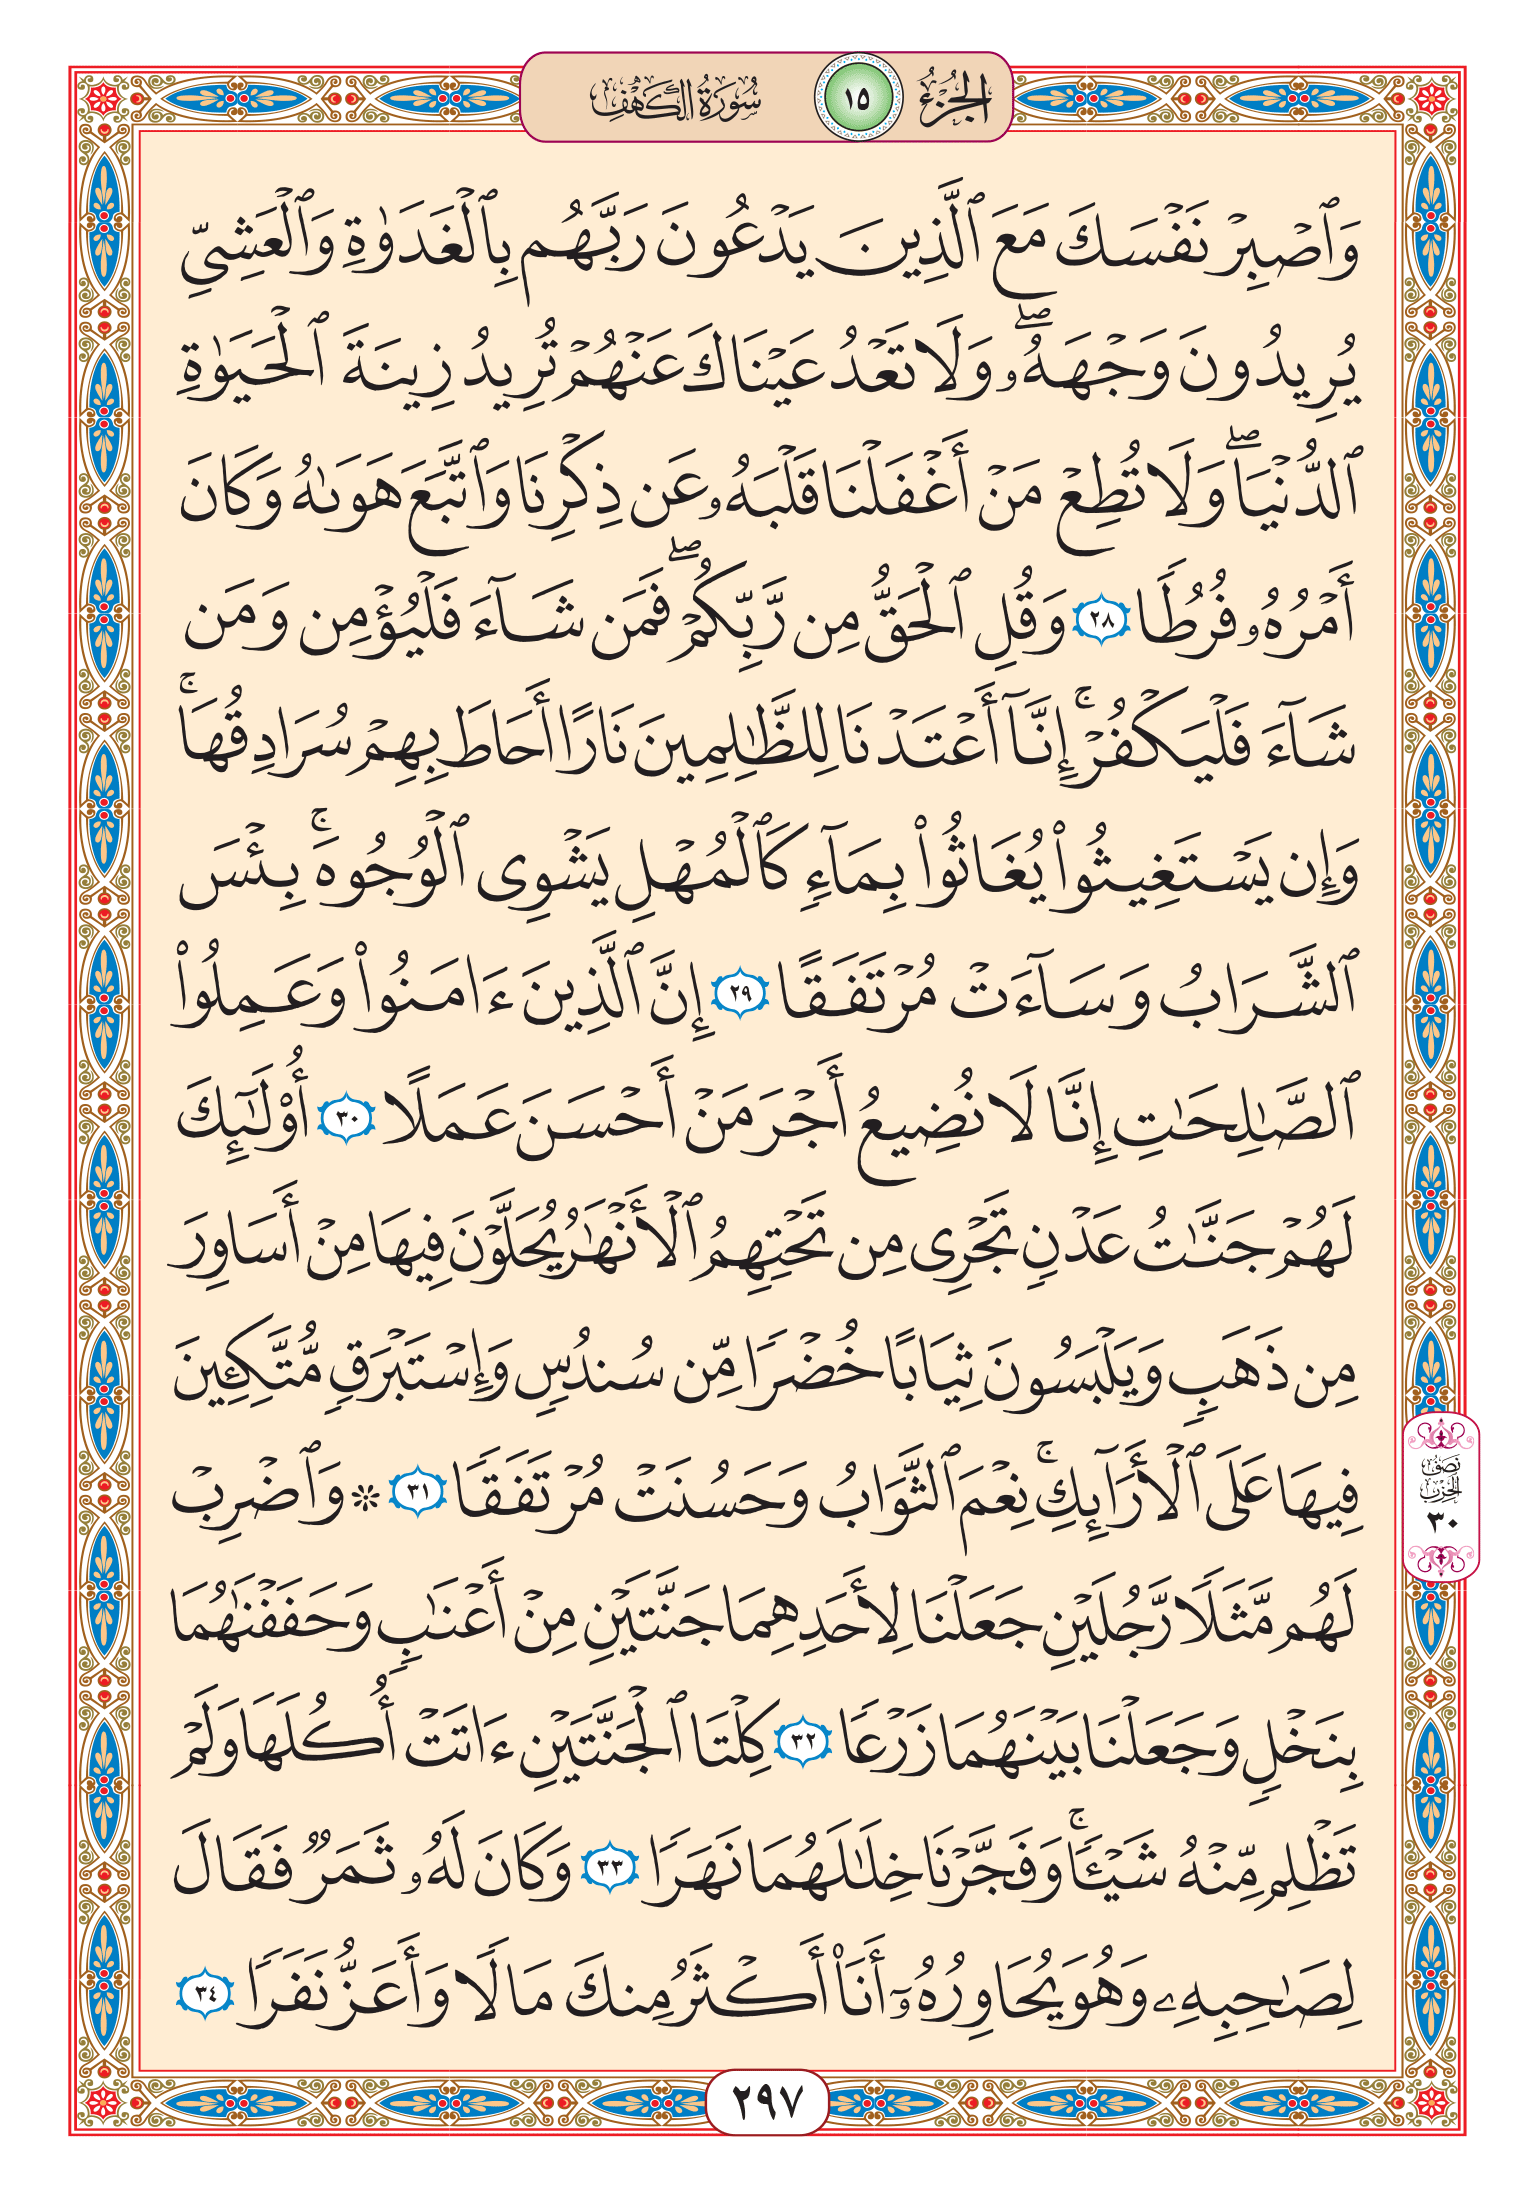 الجزء ١٥ سورة الكهف
وَٱصْبِرْ نَفْسَكَ مَعَ ٱلَّذِينَ يَدْعُونَ رَبَّهُم بِٱلْغَدَوٰةِ وَٱلْعَشِيِّ
يُرِيدُونَ وَجْهَهُۥۖ وَلَا تَعْدُ عَيْنَاكَ عَنْهُمْ تُرِيدُ زِينَةَ ٱلْحَيَوٰةِ
ٱلدُّنْيَاۖ وَلَا تُطِعْ مَنْ أَغْفَلْنَا قَلْبَهُۥ عَن ذِكْرِنَا وَٱتَّبَعَ هَوَىٰهُ وَكَانَ
أَمْرُهُۥ فُرُطًا ٢٨ وَقُلِ ٱلْحَقُّ مِن رَّبِّكُمْۖ فَمَن شَآءَ فَلْيُؤْمِن وَمَن
شَآءَ فَلْيَكْفُرْۚ إِنَّآ أَعْتَدْنَا لِلظَّٰلِمِينَ نَارًا أَحَاطَ بِهِمْ سُرَادِقُهَاۚ
وَإِن يَسْتَغِيثُوا۟ يُغَاثُوا۟ بِمَآءٍ كَٱلْمُهْلِ يَشْوِى ٱلْوُجُوهَۚ بِئْسَ
ٱلشَّرَابُ وَسَآءَتْ مُرْتَفَقًا ٢٩ إِنَّ ٱلَّذِينَ ءَامَنُوا۟ وَعَمِلُوا۟
ٱلصَّٰلِحَٰتِ إِنَّا لَا نُضِيعُ أَجْرَ مَنْ أَحْسَنَ عَمَلًا ٣٠ أُو۟لَٰٓئِكَ
لَهُمْ جَنَّٰتُ عَدْنٍ تَجْرِى مِن تَحْتِهِمُ ٱلْأَنْهَٰرُ يُحَلَّوْنَ فِيهَا مِنْ أَسَاوِرَ
مِن ذَهَبٍ وَيَلْبَسُونَ ثِيَابًا خُضْرًا مِّن سُندُسٍ وَإِسْتَبْرَقٍ مُّتَّكِـِٔينَ
فِيهَا عَلَى ٱلْأَرَآئِكِۚ نِعْمَ ٱلثَّوَابُ وَحَسُنَتْ مُرْتَفَقًا ٣١ ۞ وَٱضْرِبْ
نصف الحزب ٣٠
لَهُم مَّثَلًا رَّجُلَيْنِ جَعَلْنَا لِأَحَدِهِمَا جَنَّتَيْنِ مِنْ أَعْنَٰبٍ وَحَفَفْنَٰهُمَا
بِنَخْلٍ وَجَعَلْنَا بَيْنَهُمَا زَرْعًا ٣٢ كِلْتَا ٱلْجَنَّتَيْنِ ءَاتَتْ أُكُلَهَا وَلَمْ
تَظْلِم مِّنْهُ شَيْـًٔاۚ وَفَجَّرْنَا خِلَٰلَهُمَا نَهَرًا ٣٣ وَكَانَ لَهُۥ ثَمَرٌ فَقَالَ
لِصَٰحِبِهِۦ وَهُوَ يُحَاوِرُهُۥٓ أَنَا۠ أَكْثَرُ مِنكَ مَالًا وَأَعَزُّ نَفَرًا ٣٤
٢٩٧